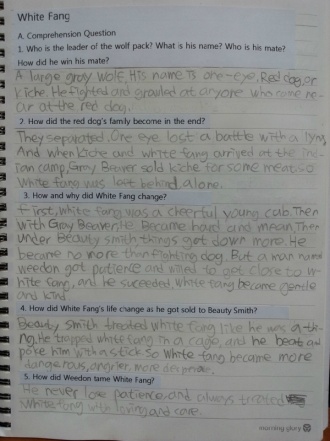 White Fang
A. Comprehension Question
1. Who is the leader of the wolf pack? What is his name? Who is his mate?
How did he win his mate?
A large gray wolf. His name is one-eye. Red dog, or
kiche. He fighted and growled at anyone who came ne-
ar at the red dog.
2. How did the red dog's family become in the end?
They separated. One eye lost a battle with a lynx,
And when kiche and white fang arrived at the ind-
ian camp, Gray Beaver sold kiche for some meat. so
White fang was left behind alone.
3. How and why did White Fang change?
First, white fang was a cheerful young cub. Then
with Gray Beaver, He Became hard and mean. Then
under Beauty smith things got down more. He
became no more than fighting dog. But a man name
weedon got patience and willed to get close to w-
hite fang, and he succeeded white fang became gentle
and kind.
4. How did White Fang's life change as he got sold to Beauty Smith?
Beauty smith treated white fang like he was a th-
ng. He trapped white fang in a cage, and he beat
poke him with a stick. so White fang became more
dangerous, angrier, more
5. How did Weedon tame White Fang?
He never lose patience, and always treated
White fang with loving and care.
morning glory